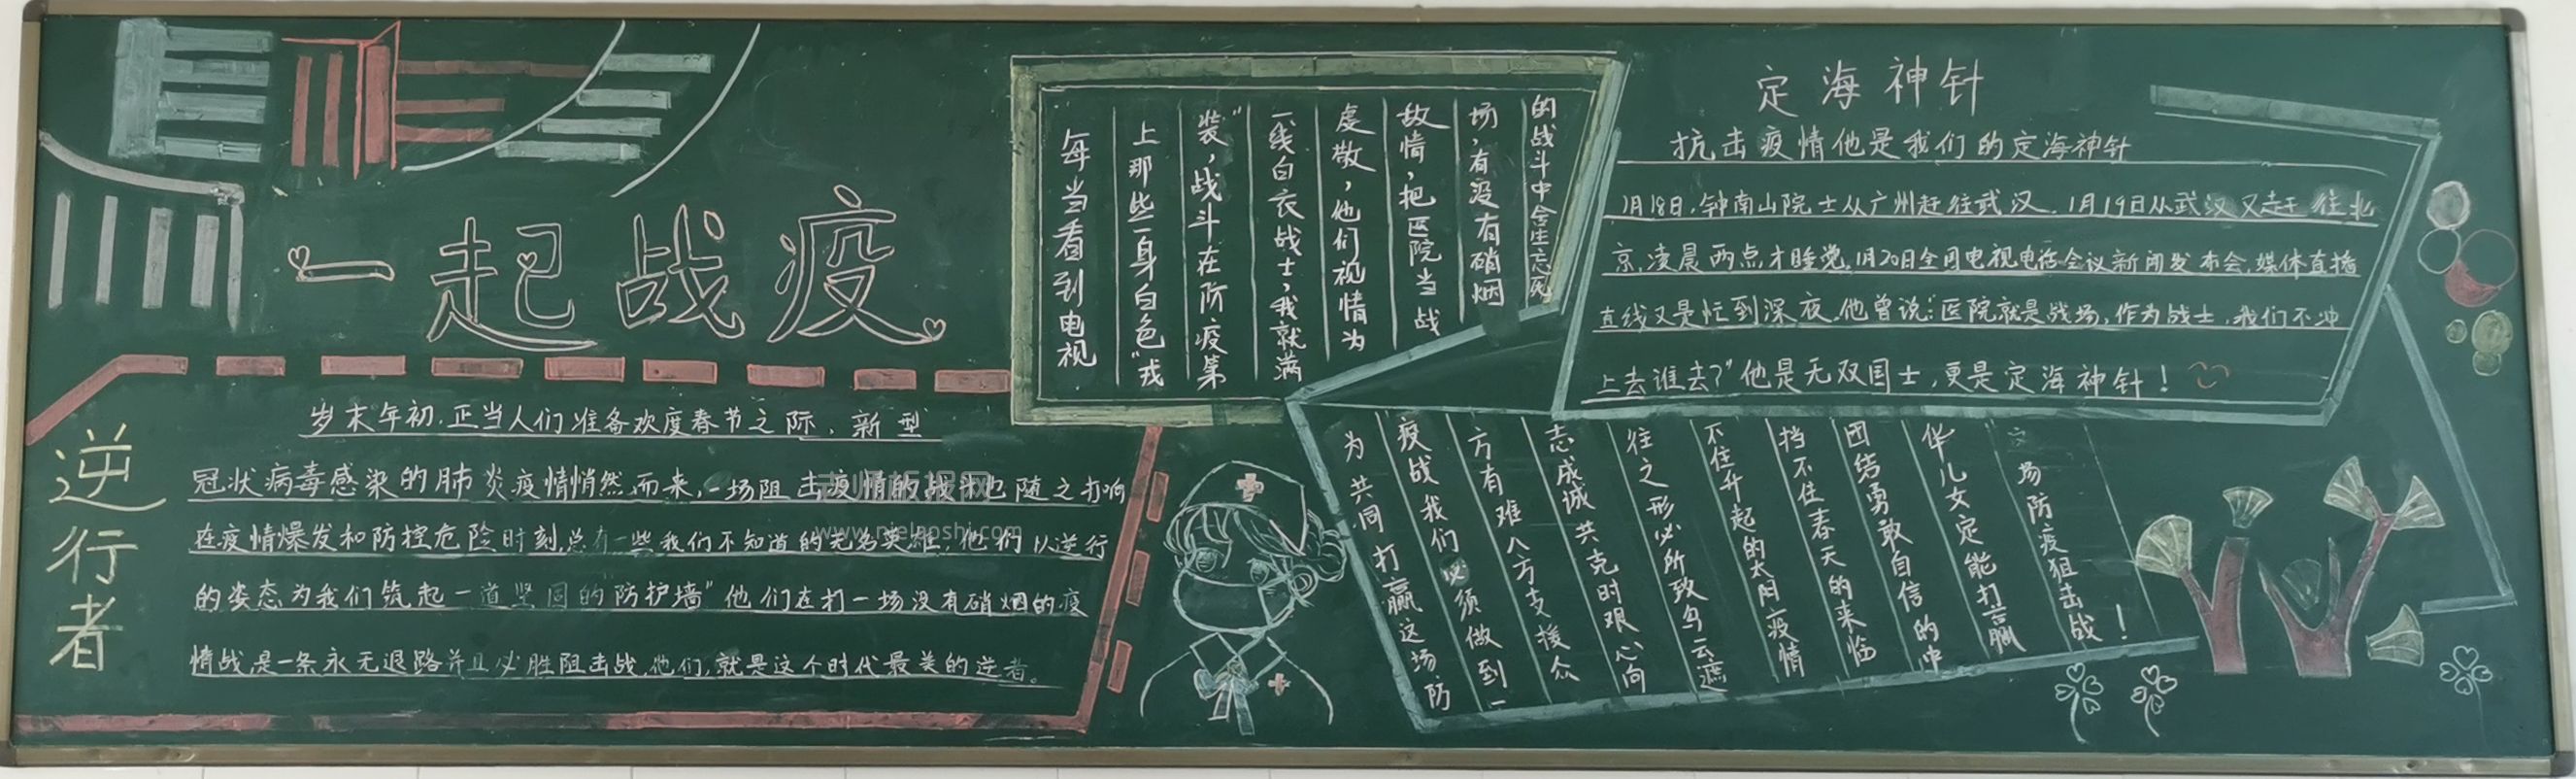 一起战疫
逆行者
岁末年初,正当人们准备欢度春节之际,新型
冠状病毒感染的肺炎疫情悄然而来,一场阻击疫情的战斗也随之打响
在疫情爆发和防控危险时刻,总有一些我们不知道的无名英雄,他们以逆行
的姿态为我们筑起一道坚固的"防护墙"他们在打一场没有硝烟的疫
情战,是一条永无退路并且必胜阻击战,他们,就是这个时代最美的逆者。
每当看到电视
上那些一身白色"戎
装",战斗在防疫第
一线白衣战士,我就满
虔敬,他们视情为
敌情,把医院当战
场,有没有硝烟
的战斗中舍生忘死
定海神针
抗击疫情他是我们的定海神针
1月18日,钟南山院士从广州赶往武汉,1月19日从武汉又赶往北
京,凌晨两点才睡觉,1月20日全国电视电话会议新闻发布会,媒体直播
直线又是忙到深夜.他曾说:"医院就是战场,作为战士,我们不冲
上去谁去?"他是无双国士,更是定海神针!
为共同打赢这场防
疫战我们必须做到一
方有难八方支援众
志成诚共克时艰心向
往之形必所致乌云遮
不住升起的太阳疫情
挡不住春天的来临
团结勇敢自信的中
华儿女定能打赢
场防疫狙击战!
www.nielaoshi.com